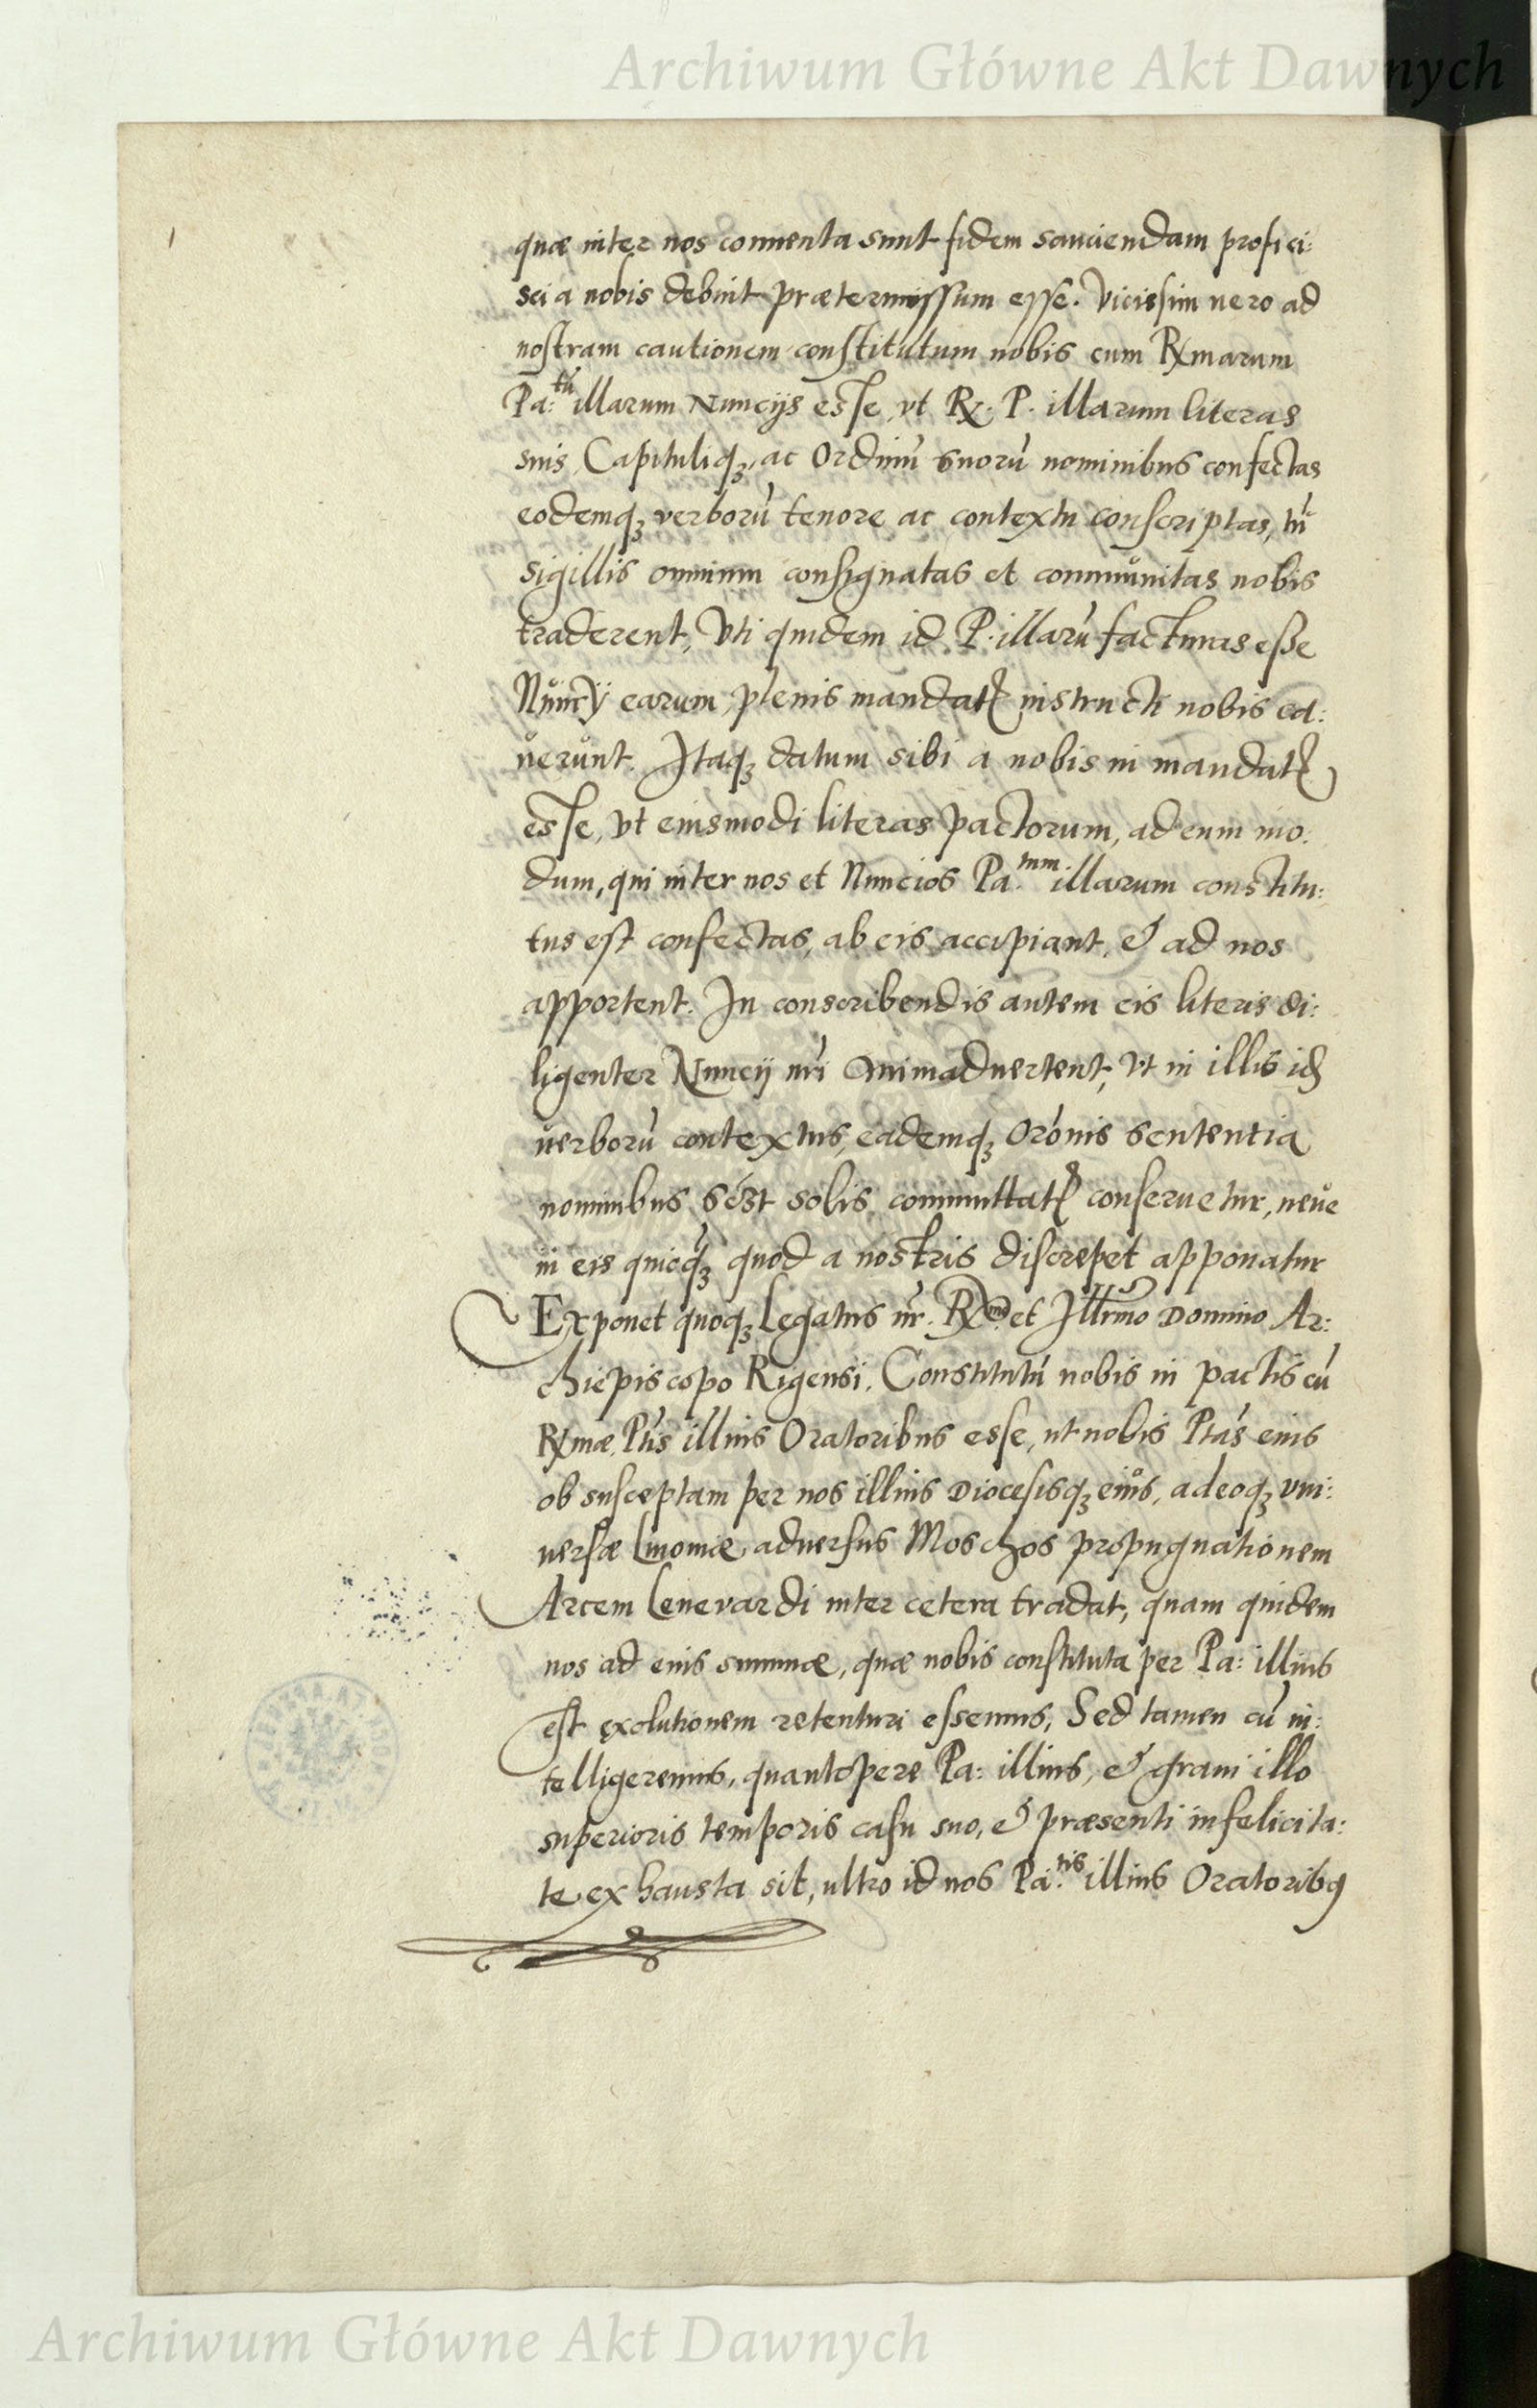 Archiwum Główne Akt Dawnych
quæ inter nos conuenta sunt fidem sanciendam profici:
sci a nobis debuit prætermissum esse. Vicissim uero ad
nostram cautionem constitutum nobis cum Rxmarum
Pa:tū illarum Nuncijs esse, vt Rx. P. illarum literas
suis, Capituliqꝫ, ac Ordinū suorū nominibus confectas
eodemqꝫ verborū tenore ac contextu conscriptas, tū
sigillis omnium consignatas et communitas nobis
traderent, Vti quidem id P. illarū facturas esse
Nuncÿ earum, plenis mandatꝭ instructi nobis ca:
uerunt. Itaqꝫ datum sibi a nobis in mandatꝭ
esse, vt eiusmodi literas pactorum, ad eum mo:
dum, qui inter nos et Nuncios Pa:tum illarum constitu:
tus est confectas, ab eis accipiant, et ad nos
apportent. In conscribendis autem eis literis di:
ligenter Nuncij nrī animaduertent, vt in illis idē
uerborū contextus, eademqꝫ orōnis sententia
nominibus solis commutatꝭ conseruetur, neue
in eis quicqꝫ quod a nostris discrepet apponatur
Exponet quoqꝫ Legatus nr̄. Rxmo et Illrmo Domino Ar:
chiepiscopo Rigensi. Constitutū nobis in pactis cū
Rxmæ Ptīs illius Oratoribus esse, ut nobis Ptās eius
ob susceptam per nos illius Diocesisqꝫ eius, adeoqꝫ vni:
uersæ Liuoniæ aduersus Moschos propugnationem
Arcem Leneuardi inter cetera tradat, quam quidem
nos ad eius summæ, quæ nobis constituta per Pa: illius
est exolutionem retenturi essemus, Sed tamen cū in:
telligeremus, quantopere Pa: illius, et graui illo
superioris temporis casu suo, et præsenti infelicita:
te exhausta sit, ultro id nos Pa:tis illius Oratoribꝰ
Archiwum Główne Akt Dawnych